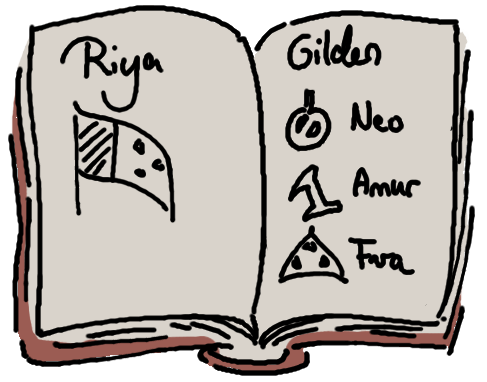 Riya
Gilden
Neo
Amur